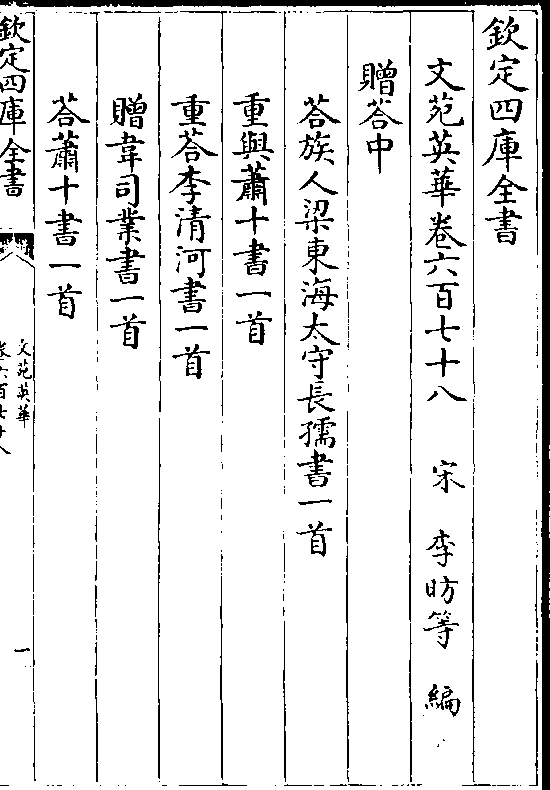 欽定四庫全書
文苑英華卷六百七十八 宋 李昉等 編
贈荅中
荅族人梁東海太守長孺書一首
重與蕭十書一首
重荅李清河書一首
贈韋司業書一首
荅蕭十書一首
欽定四庫全書
文苑英華
卷六百七十八
一